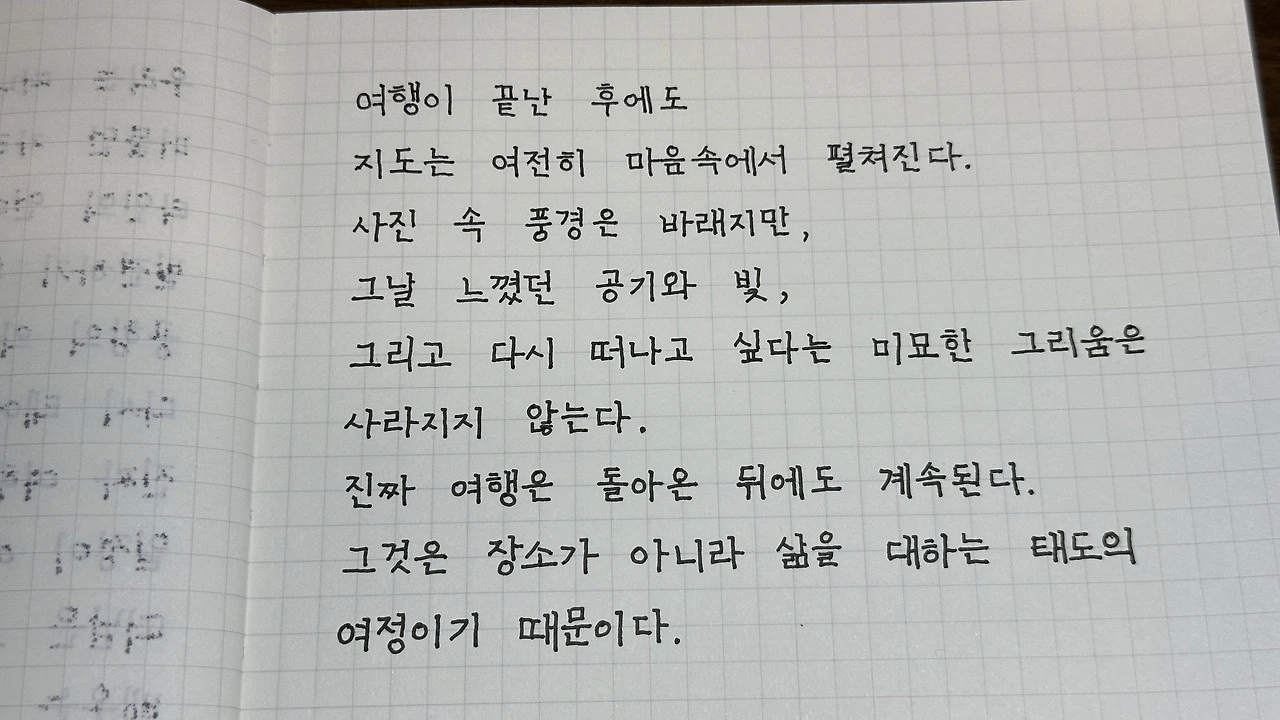 여행이 끝난 후에도
지도는 여전히 마음속에서 펼쳐진다.
사진 속 풍경은 바래지만,
그날 느꼈던 공기와 빛,
그리고 다시 떠나고 싶다는 미묘한 그리움은
사라지지 않는다.
진짜 여행은 돌아온 뒤에도 계속된다.
그것은 장소가 아니라 삶을 대하는 태도의
여정이기 때문이다.